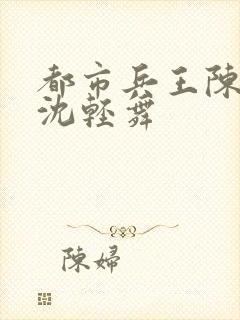 都市兵王陳
沈輕舞
陳婦